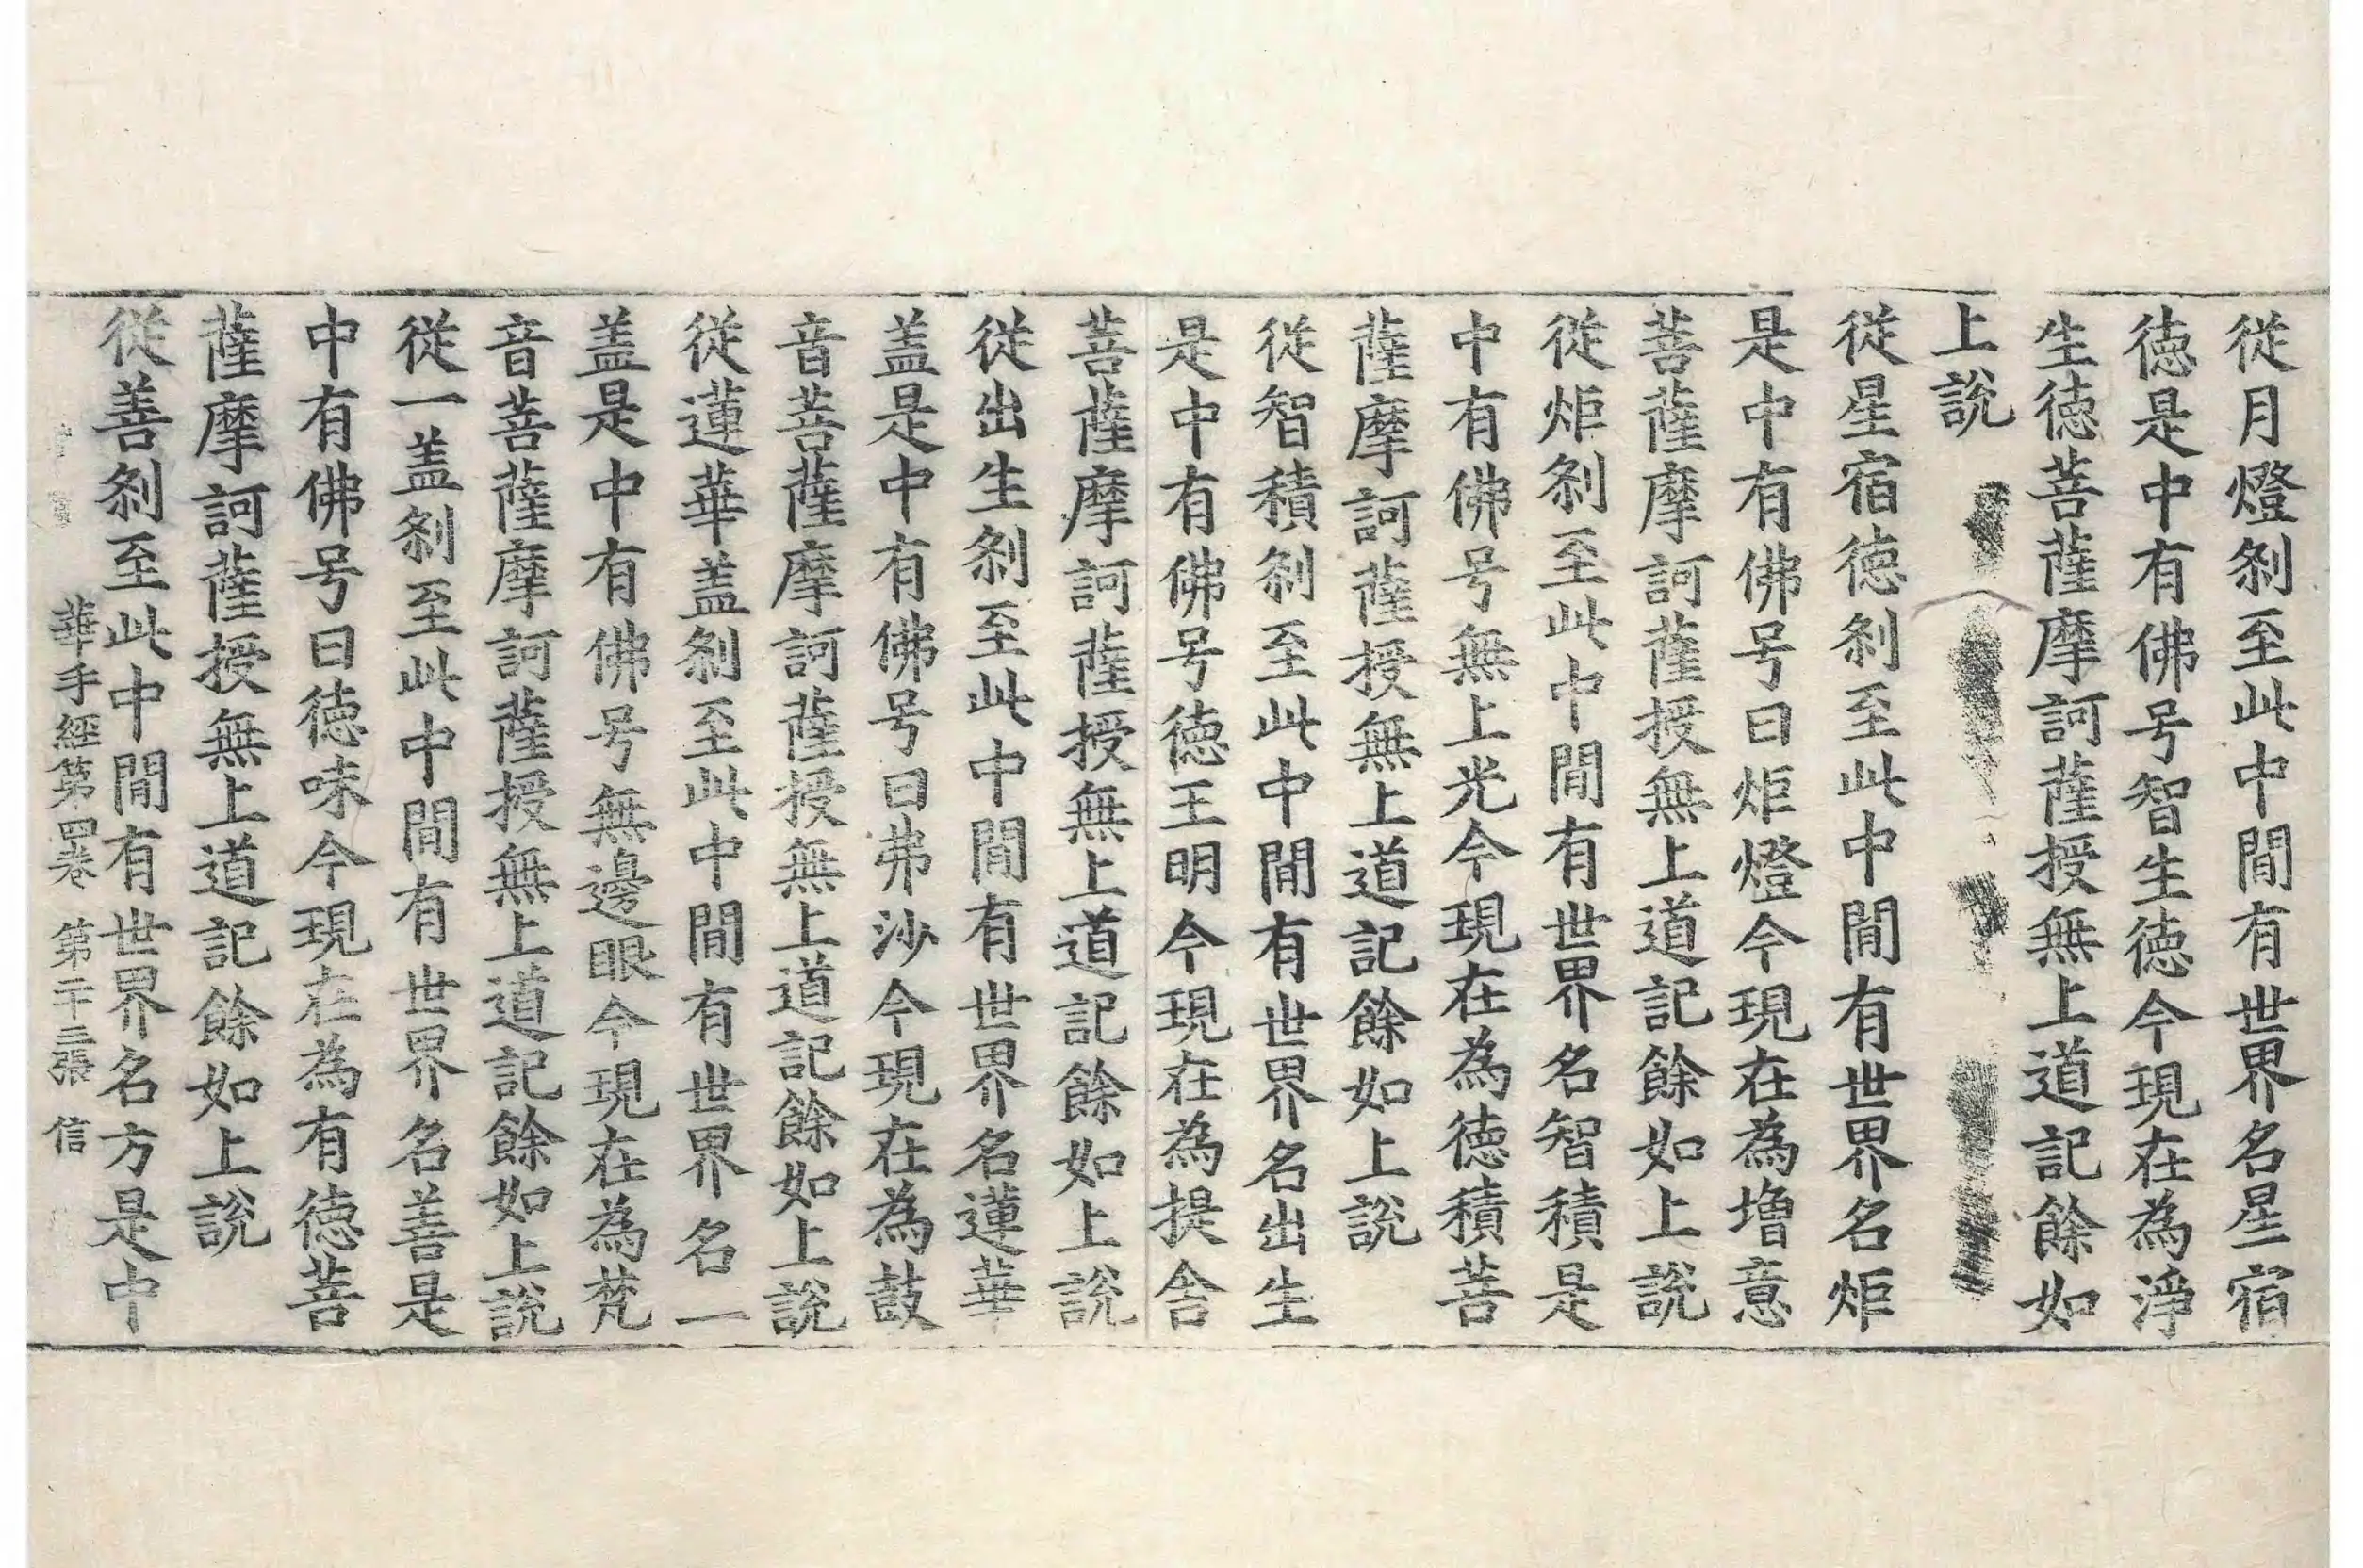 從月燈刹至此中間有世界名星宿
德是中有佛号智生德今現在為淨
生德菩薩摩訶薩授無上道記餘如
上說
從星宿德刹至此中間有世界名炬
是中有佛号曰炬燈今現在為増意
菩薩摩訶薩授無上道記餘如上說
從炬刹至此中間有世界名智積是
中有佛号無上光今現在為德積菩
薩摩訶薩授無上道記餘如上說
從智積刹至此中間有世界名出生
是中有佛号德王明今現在為提舍
菩薩摩訶薩授無上道記餘如上說
從出生刹至此中間有世界名蓮華
盖是中有佛号曰弗沙今現在為鼓
音菩薩摩訶薩授無上道記餘如上說
從蓮華盖刹至此中間有世界名一
盖是中有佛号無邊眼今現在為梵
音菩薩摩訶薩授無上道記餘如上說
從一盖刹至此中間有世界名善是
中有佛号曰德味今現在為有德菩
薩摩訶薩授無上道記餘如上說
從善刹至此中間有世界名方是中
華手經第四卷 第二十三張 信